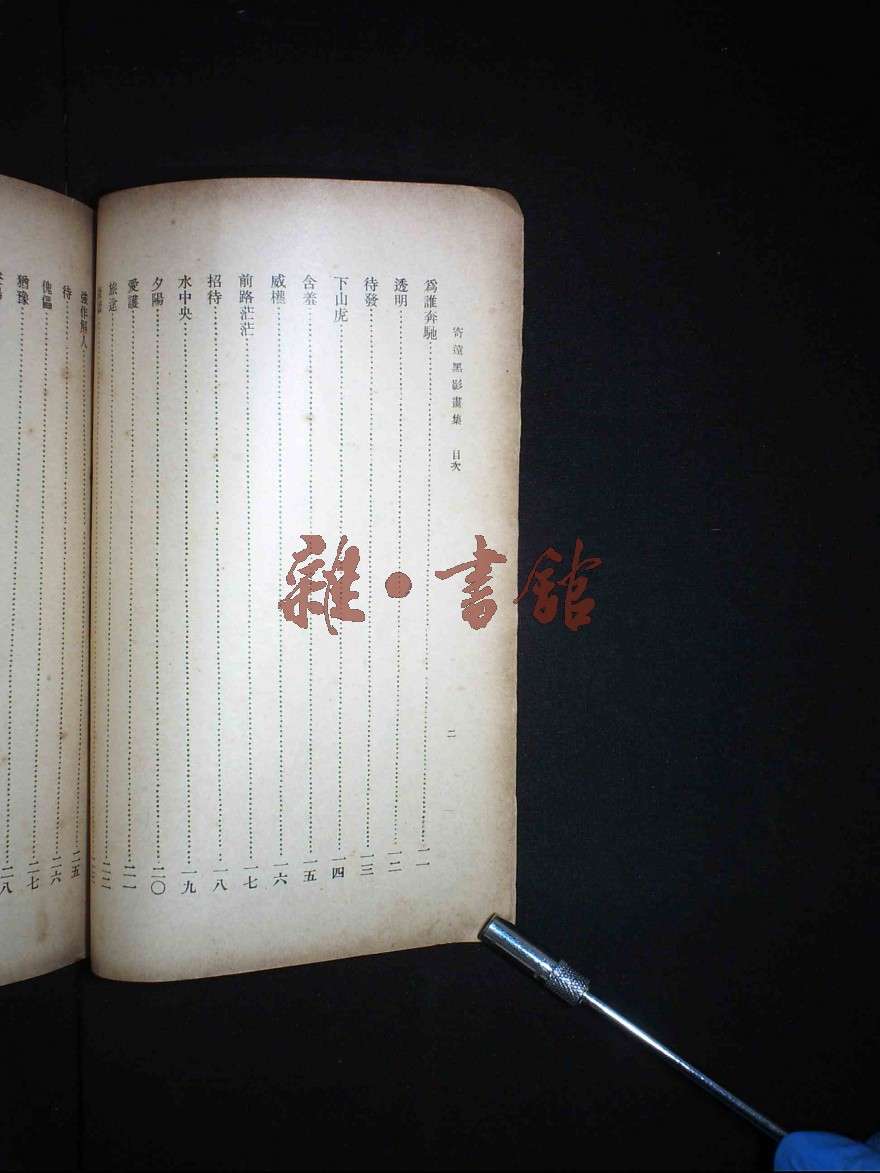 寄遠黑影畫集 目次 二
爲誰奔馳 一一
透明 一二
待發 一三
下山虎 一四
含羞 一五
威權 一六
前路茫茫 一七
招待 一八
水中央 一九
夕陽 二〇
愛護 二一
旅途 二二
強作解人 二五
待 二六
傀儡 二七
猶豫 二八
雜·書館